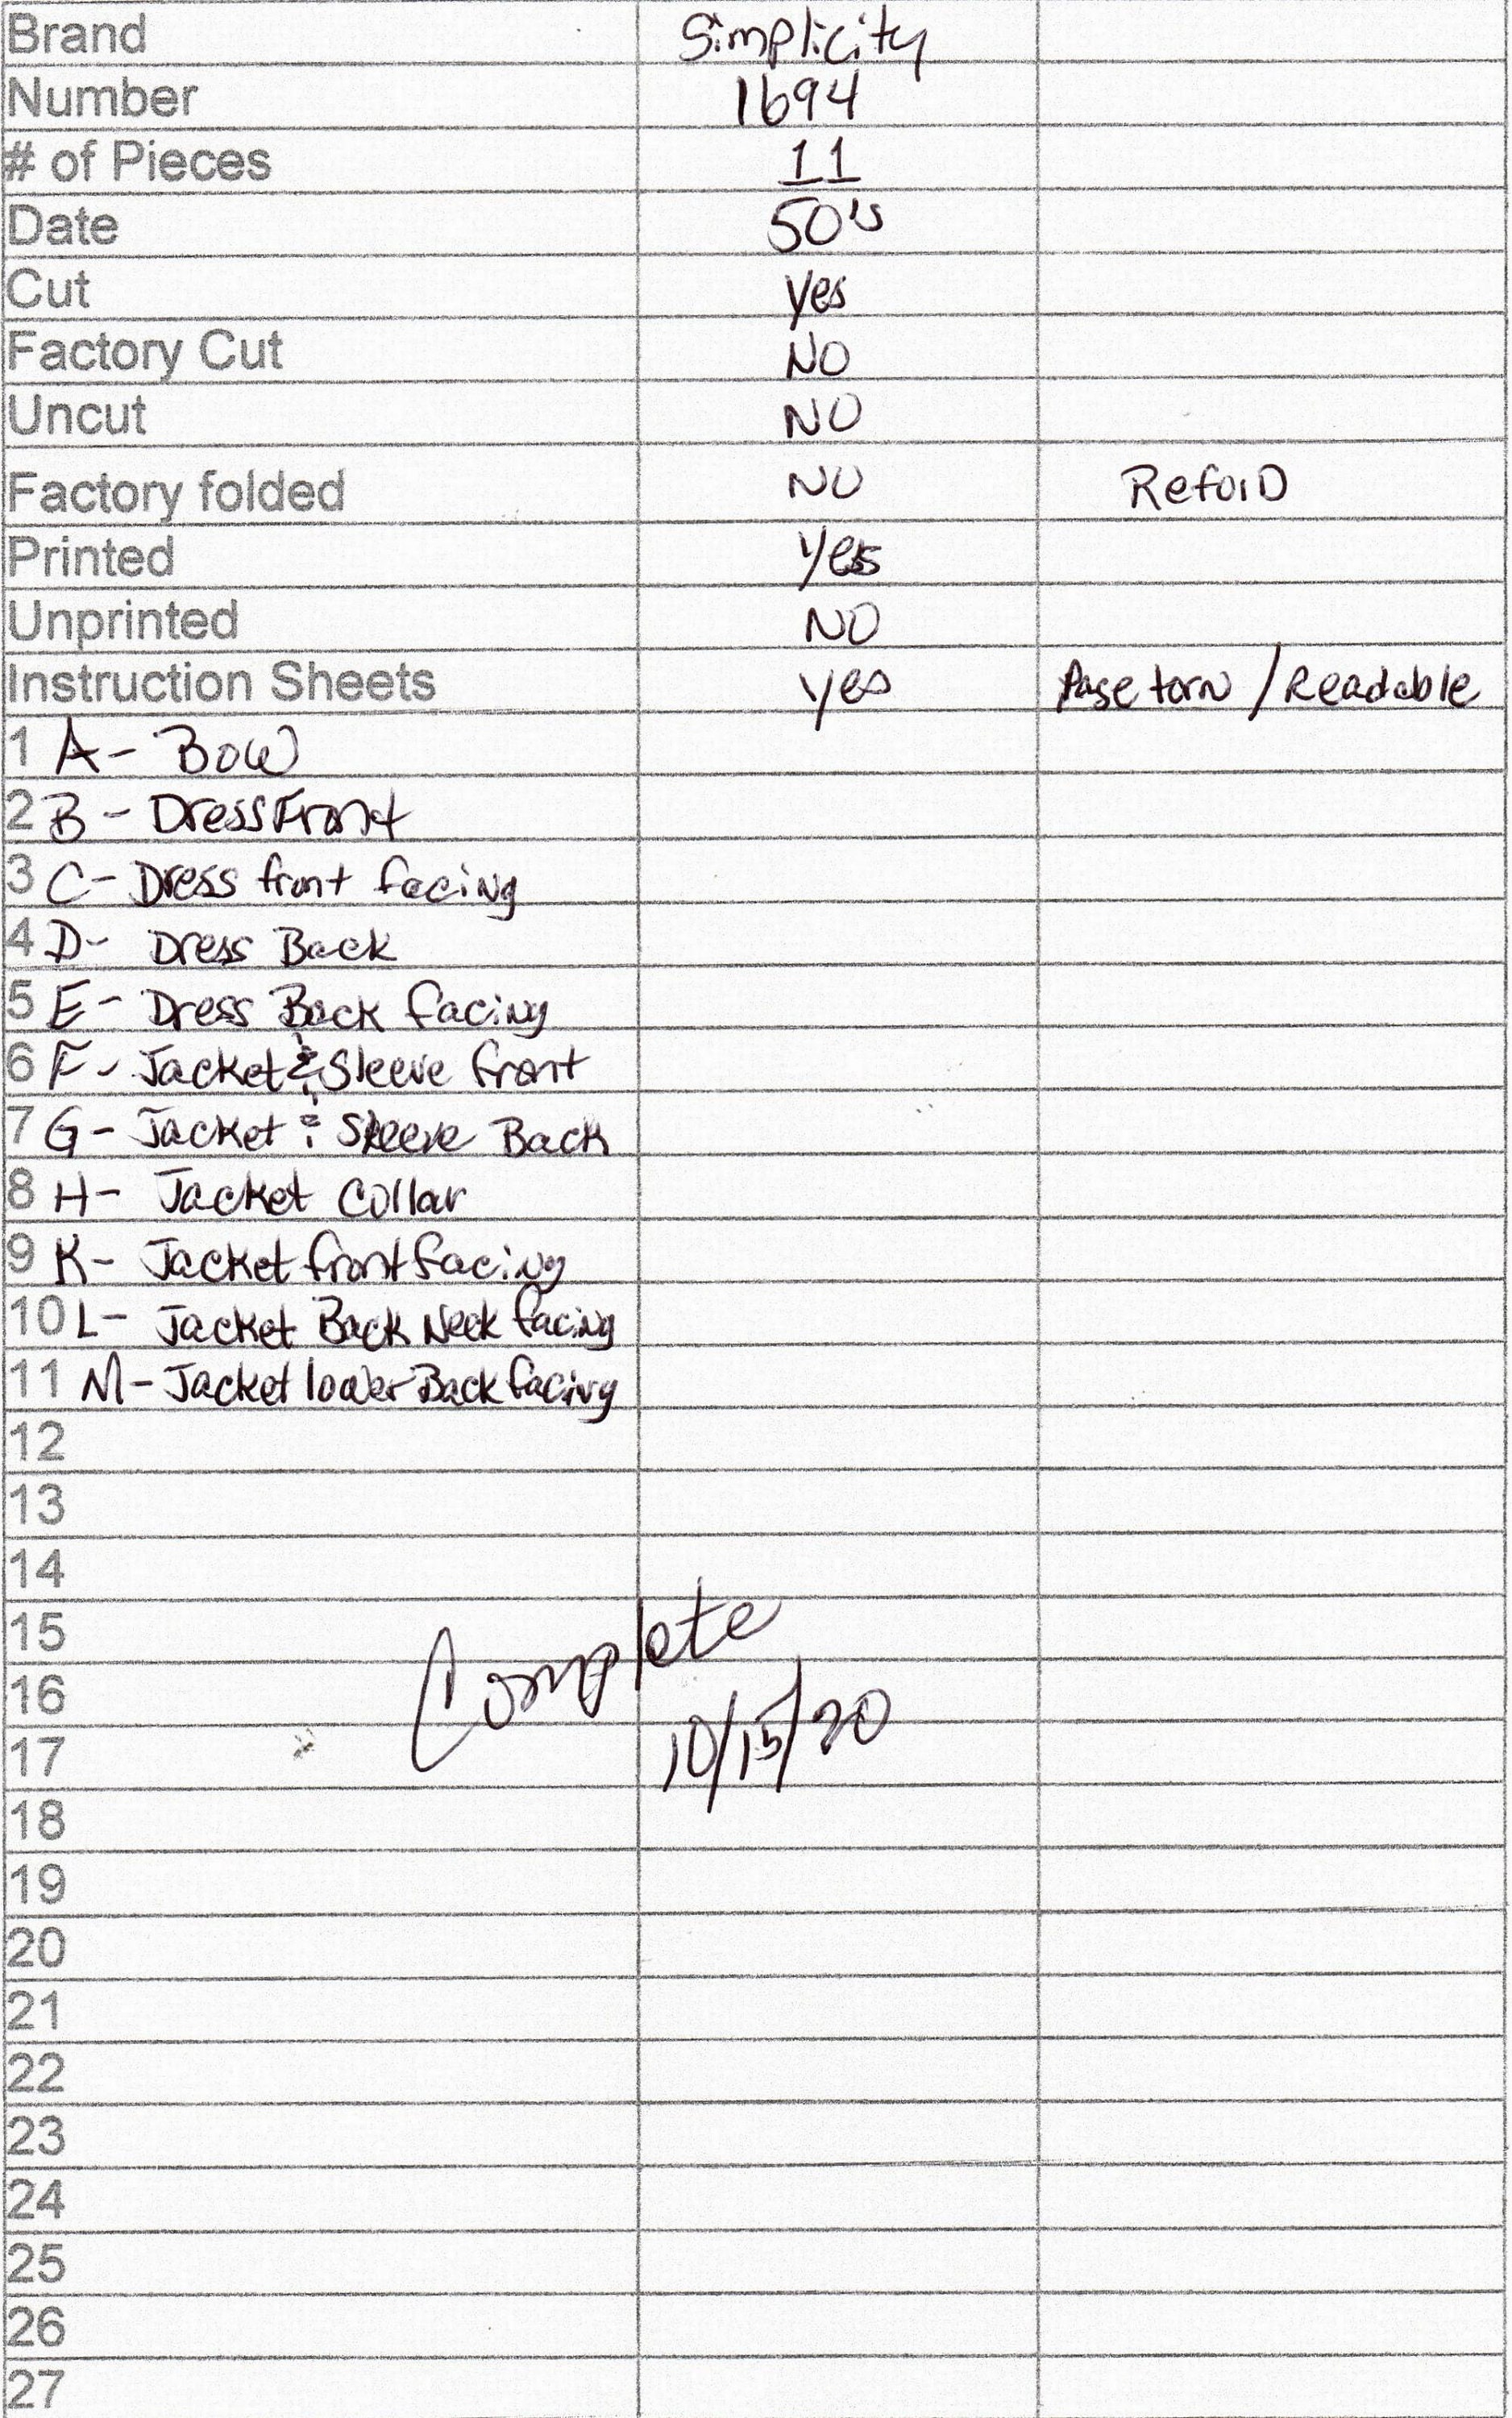 Brand Simplicity
Number 1694
# of Pieces 11
Date 50's
Cut yes
Factory Cut NO
Uncut NO
Factory folded NO Refold
Printed yes
Unprinted NO
Instruction Sheets yes Page torn / Readable
1 A- Bow
2 B - Dress Front
3 C- Dress front facing
4 D- Dress Back
5 E- Dress Back facing
6 F- Jacket & Sleeve front
7 G- Jacket & Sleeve Back
8 H- Jacket Collar
9 K- Jacket front facing
10 L- Jacket Back Neck facing
11 M- Jacket lower Back facing
12
13
14
15 Complete
16
17 10/15/20
18
19
20
21
22
23
24
25
26
27